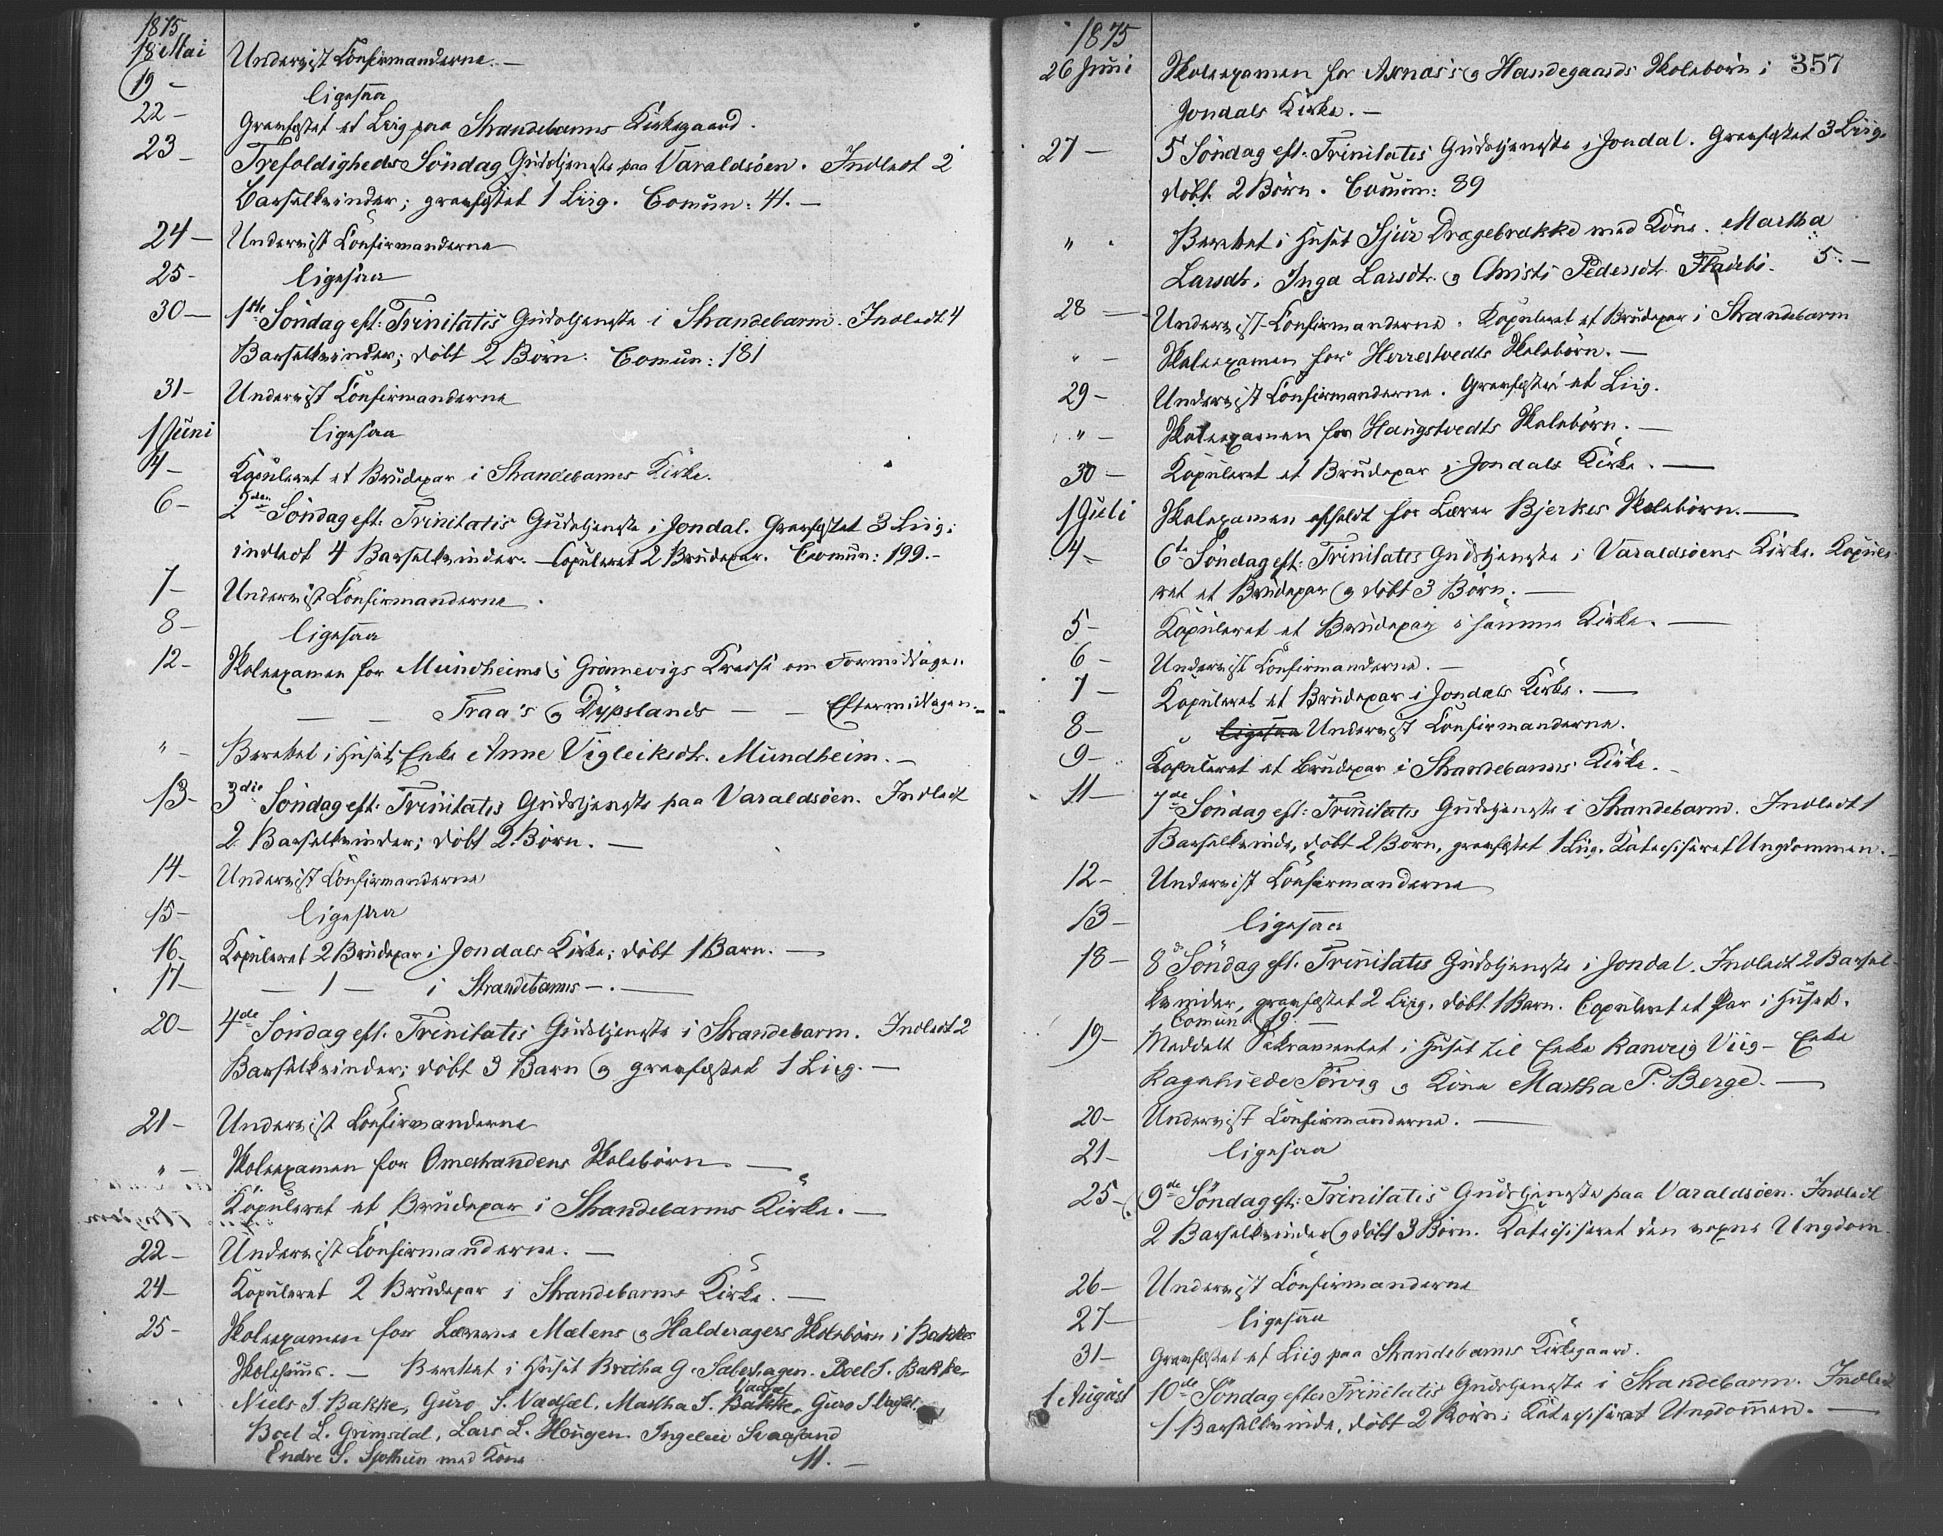 1875
18 Mai Undervist Confirmanderne. —
19 — ligesaa
22 — Gravfæstet et Liig paa Strandebarms Kirkegaard.
23 — Trefoldigheds Söndag Gudstjeneste paa Varaldsöen. Indledt 2
Barselkvinder; gravfæstet 1 Liig. Comun: 4. —
24 — Undervist Confirmanderne
25 — ligesaa
30 — 1ste Söndag eft. Trinitatis Gudstjeneste i Strandebarm. Indledt 4
Barselkvinder; döbt 2 Börn. Comun: 181
31 — Undervist Confirmanderne
1 Juni ligesaa
4 — Kopuleret et Brudepar i Strandebarms Kirke.
6 — 2den Söndag eft. Trinitatis Gudstjeneste i Jondal. Gravfæstet 3 Liig;
indledt 4 Barselkvinder. — Copuleret 2 Brudepar. Comun: 199. —
7 — Undervist Confirmanderne.
8 — ligesaa
12 — Skoleexamen for Mundheims i Grönevigs Kredse om Formiddagen
— — Traa's og Dypslands — — Eftermiddagen. —
" — Berettet i Huset Enke Anne Vigleiksdtr. Mundheim. —
13 — 3die Söndag eft. Trinitatis Gudstjeneste paa Varaldsöen. Indledt
2 Barselkvinder; döbt 2 Börn. —
14 — Undervist Confirmanderne
15 — ligesaa
16 — Kopuleret 2 Brudepar i Jondals Kirke; döbt 1 Barn. —
17 — — 1 — i Strandebarms — . —
20 — 4de Söndag eft. Trinitatis Gudstjeneste i Strandebarm. Indledt 2
Barselkvinder; döbt 3 Barn og gravfæstet 1 Liig. —
21 — Undervist Confirmanderne
" — Skoleexamen for Omestrandens Skolebörn. —
Kopuleret et Brudepar i Strandebarms Kirke. —
22 — Undervist Confirmanderne. —
24 — Kopuleret 2 Brudepar i Strandebarms Kirke. —
25 — Skoleexamen for Lærerne Mælens og Halderagers Skolebörn i Bakke
Skolehuus. — Berettet i Huset Britha G. Boel S. Bakke
Niels S. Bakke, Guro S. Martha S. Bakke, Guro S.
Boel L. Grimsdal, Lars L. Haugen
Endre S. med Kone 11. —
1875
357
26 Juni Skoleexamen for Axnæs's og Handegaards Skolebörn i
Jondals Kirke. —
27 — 5 Söndag eft. Trinitatis Gudstjeneste i Jondal. Gravfæstet 3 Liig.
döbt 2 Börn. Comun: 89
" . Berettet i Huset Sjur Drægebrække med Kone. Martha
Larsdtr. Inga Larsdtr. og Christi Pedersdtr. 5. —
28 — Undervist Confirmanderne. Kopuleret et Brudepar i Strandebarm
" — Skoleexamen for Herrestvedts Skolebörn. —
29 — Undervist Confirmanderne. Gravfæstet et Liig.
" — Skoleexamen for Haugstvedts Skolebörn. —
30 — Kopuleret et Brudepar i Jondals Kirke. —
1 Juli Skolexamen afholdt for Lærer Bjerkes Skolebörn. —
4 — 6te Söndag eft: Trinitatis Gudstjeneste i Varaldsöens Kirke. Kopule-
ret et Brudepar og döbt 3 Börn. —
5 — Kopuleret et Brudepar i samme Kirke. —
6 — Undervist Confirmanderne. —
7 — Kopuleret et Brudepar i Jondals Kirke. —
8 — ligesaa Undervist Confirmanderne.
9 — Kopuleret et Brudepar i Strandebarms Kirke. —
11 — 7de Söndag eft: Trinitatis Gudstjeneste i Strandebarm. Indledt 1
Barselkvinde, döbt 2 Börn, gravfæstet 1 Liig. Katechiseret Ungdommen. —
12 — Undervist Confirmanderne
13 — ligesaa
18 — 8de Söndag eft. Trinitatis Gudstjeneste i Jondal. Indledt 2 Barsel-
kvinder, gravfæstet 2 Liig, döbt 1 Barn. Copuleret et Par i Huset.
Comun 59. —
19 — Meddelt Sakramentet i Huset til Enke Ranveig Viig — Enke
Ragnhilde Sörvig og Kone Martha P. Berge. —
20 — Undervist Confirmanderne. —
21 — ligesaa
25 — 9de Söndag eft: Trinitatis Gudstjeneste paa Varaldsöen. Indledt
2 Barselkvinder og döbt 3 Börn. Katechiseret den voxne Ungdom.
26 — Undervist Confirmanderne
27 — ligesaa
31 — Gravfæstet et Liig paa Strandebarms Kirkegaard.
1 August 10de Söndag efter Trinitatis Gudstjeneste i Strandebarm. Indledt
1 Barselkvinde, döbt 2 Börn; Katechiseret Ungdommen. —